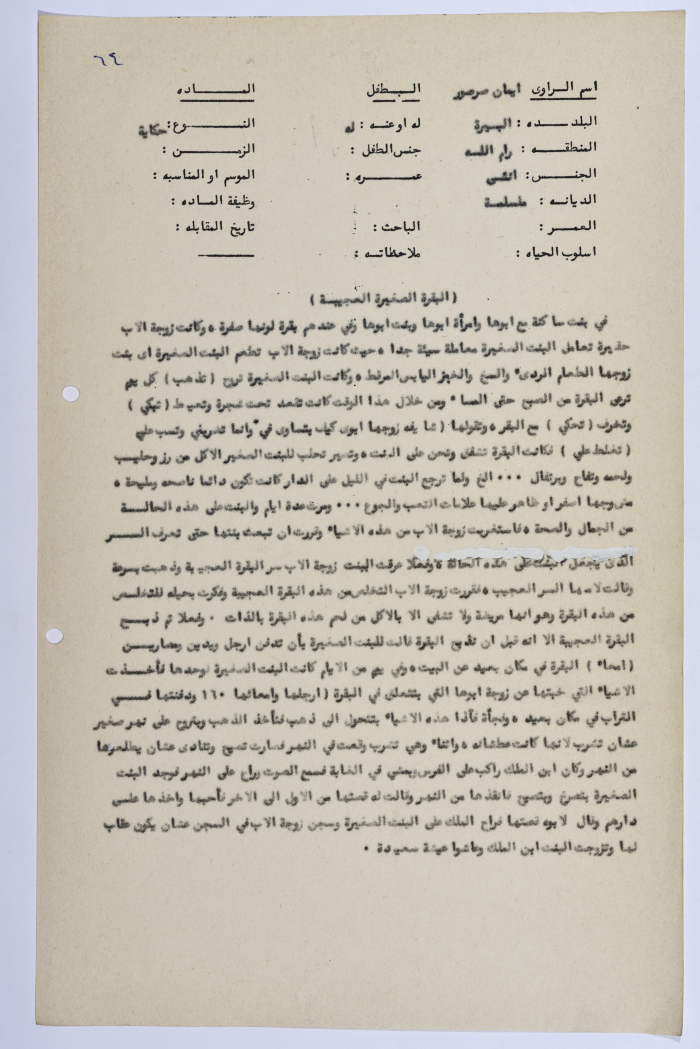 ٦٤
اسم الراوى ايمان صرصور البطل الماده
البلده : البيرة له او عنه : له النوع : حكاية
المنطقه : رام الله جنس الطفل : الزمن :
الجنس : انثى عمره : الموسم او المناسبه :
الديانه : مسلمة وظيفة الماده :
العمر : الباحث : تاريخ المقابله :
اسلوب الحياه : ملاحظاته :
( البقرة الصغيرة العجيبة )
في بنت ساكنة مع ابوها وامرأة ابوها وبنت ابوها وفي عندهم بقرة لونها صفرة ، وكانت زوجة الاب
حقيرة تعامل البنت الصغيرة معاملة سيئة جدا ، حيث كانت زوجة الاب تطعم البنت الصغيرة اى بنت
زوجها الطعام الردىء والخبز اليابس ، وكانت البنت الصغيرة تروح ( تذهب ) كل يوم
ترعى البقرة من الصبح حتى المساء ومن خلال هذا الوقت كانت تقعد تحت شجرة وتعيط ( تبكي )
وتخرف ( تحكي ) مع البقره وتقولها ( ابوى كيف بتساوى في وانها تضربني وتسب علي
( تغلط علي ) فكانت البقرة تشفق وتحن على البنت ، وتصير تحلب للبنت الصغير الاكل من رز وحليب
ولحمه وتفاح وبرتقال ... الخ ولما ترجع البنت في الليل على الدار كانت تكون دائما ناصحه ومليحة ،
وجها اصفر او ظاهر عليها علامات التعب والجوع ... ومرت عدة ايام والبنت على هذه الحالة
من الجمال والصحة ، فاستغربت زوجة الاب من هذه الاشياء وقررت ان تبعث بنتها حتى تعرف السر
الذى يجعل البنت على هذه الحالة ، وفعلا عرفت البنت زوجة الاب سر البقرة العجيبة وذهبت بسرعة
وقالت لامها السر العجيب ، فقررت زوجة الاب التخلص من هذه البقرة العجيبة وفكرت بحيله للتخلص
من هذه البقرة وهو انها مريضة ولا تشفى الا بالاكل من لحم هذه البقرة بالذات . وفعلا تم ذبح
البقرة العجيبة الا انه قبل ان تذبح البقرة قالت للبنت الصغيرة بأن تدفن ارجل ويدين ومصارين
( امعاء ) البقرة في مكان بعيد عن البيت ، وفي يوم من الايام كانت البنت الصغيرة لوحدها فأخذت
الاشياء التي خبتها عن زوجة ابوها التي بتتعلق في البقرة ( ارجلها وامعائها ودفنتها في
التراب في مكان بعيد ، وفجأة فاذا هذه الاشياء بتتحول الى ذهب فتأخذ الذهب وبتروح على نهر صغير
عشان تشرب لانها كانت عطشانه ، واثناء وهي تشرب وقعت في النهر فصارت تصيح وتنادى عشان يطلعوها
من النهر وكان ابن الملك راكب على الفرس وبمشي في الغابة فسمع الصوت وراح على النهر فوجد البنت
الصغيرة بتصرخ وبتصيح فانقذها من النهر وقالت له قصتها من الاول الى الاخر فأحبها واخذها على
دارهم وقال لابوه قصتها فراح الملك على البنت الصغيرة وسجن زوجة الاب في السجن عشان يكون عقاب
لها وتزوجت البنت ابن الملك وعاشوا عيشة سعيدة .